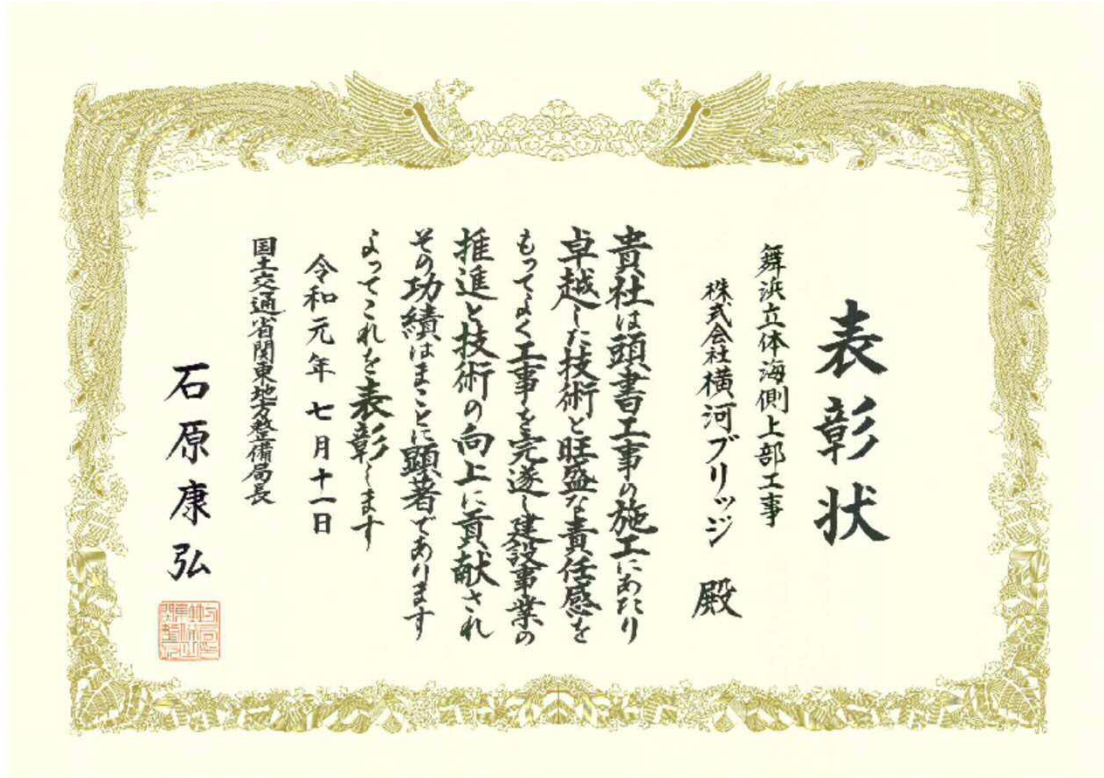 表彰状
舞浜立体海側上部工事
株式会社横河ブリッジ 殿
貴社は頭書工事の施工にあたり
卓越した技術と旺盛な責任感を
もってよく工事を完遂し建設事業の
推進と技術の向上に貢献され
その功績はまことに顕著であります
よってこれを表彰します
令和元年七月十一日
国土交通省関東地方整備局長
石原康弘